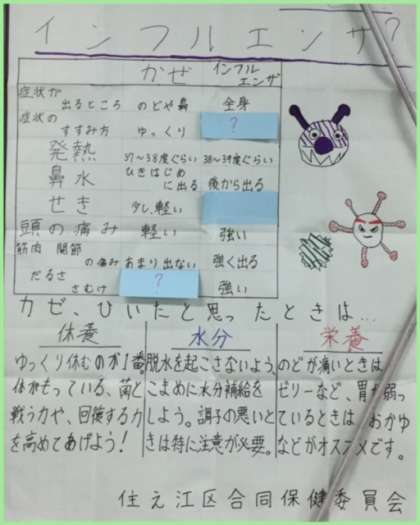 インフルエンザ?
かぜ インフルエンザ
症状が出るところ のどや鼻 全身
症状のすすみ方 ゆっくり ?
発熱 37~38度ぐらい 38~39度ぐらい
鼻水 ひきはじめに出る 後から出る
せき 少し、軽い
頭の痛み 軽い 強い
筋肉 関節の痛み あまり出ない 強く出る
だるさ さむけ ? 強い
カゼ、ひいたと思ったときは…
休養
ゆっくり休むのが1番
体がもっている、菌と
戦う力や、回復する力
を高めてあげよう!
水分
脱水を起こさないよう、
こまめに水分補給を
しよう。調子の悪いと
きは特に注意が必要。
栄養
のどが痛いときは
ゼリーなど、胃が弱っ
ているときは、おかゆ
などがオススメです。
住之江区合同保健委員会